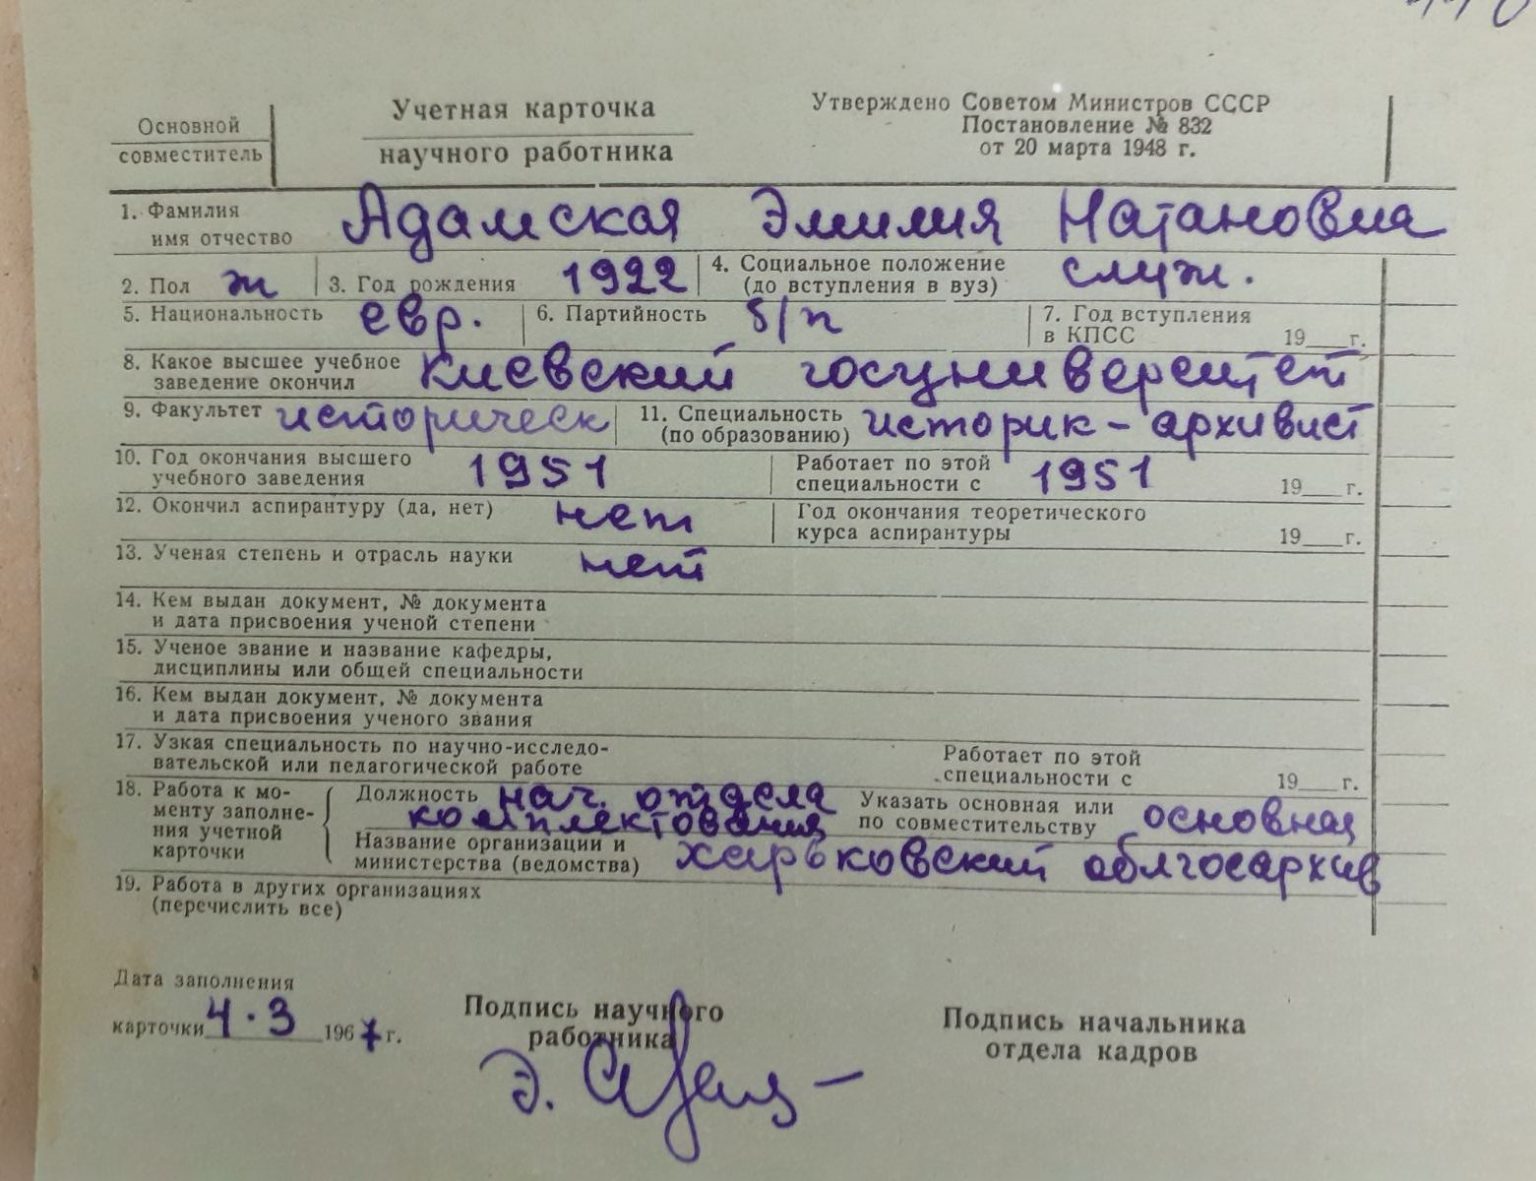 Основной
совместитель
Учетная карточка
научного работника
Утверждено Советом Министров СССР
Постановление № 832
от 20 марта 1948 г.
1. Фамилия
имя отчество Адамская Эмилия Натановна
2. Пол ж 3. Год рождения 1922 4. Социальное положение
(до вступления в вуз) служ.
5. Национальность евр. 6. Партийность б/п 7. Год вступления
в КПСС 19__г.
8. Какое высшее учебное
заведение окончил Киевский госуниверситет
9. Факультет историческ 11. Специальность
(по образованию) историк-архивист
10. Год окончания высшего
учебного заведения 1951 Работает по этой
специальности с 1951 19__г.
12. Окончил аспирантуру (да, нет) нет Год окончания теоретического
курса аспирантуры 19__г.
13. Ученая степень и отрасль науки нет
14. Кем выдан документ, № документа
и дата присвоения ученой степени
15. Ученое звание и название кафедры,
дисциплины или общей специальности
16. Кем выдан документ, № документа
и дата присвоения ученого звания
17. Узкая специальность по научно-исследо-
вательской или педагогической работе
Работает по этой
специальности с 19__г.
18. Работа к мо-
менту заполне-
ния учетной
карточки
Должность нач. отдела
комплектования
Указать основная или
по совместительству основная
Название организации и
министерства (ведомства) харьковский облгосархив
19. Работа в других организациях
(перечислить все)
Дата заполнения
карточки 4.3 1967 г.
Подпись научного
работника
Подпись начальника
отдела кадров